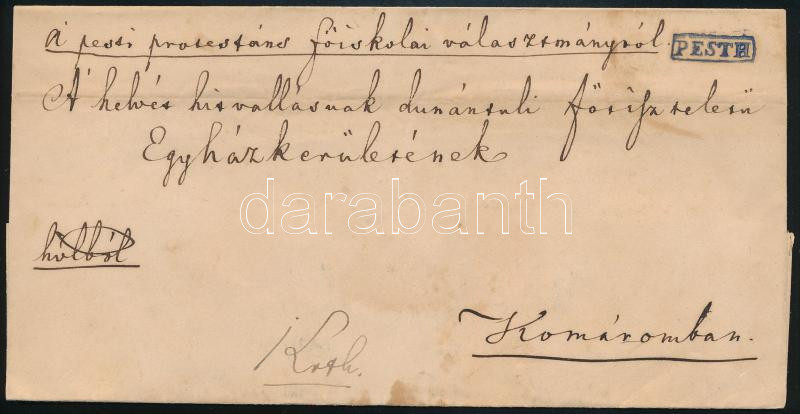 A pesti protestáns főiskolai választmánytól.
PESTH
A helvét hitvallásuak dunántuli főtiszteletü
Egyházkerületének
darabanth
Komáromban.